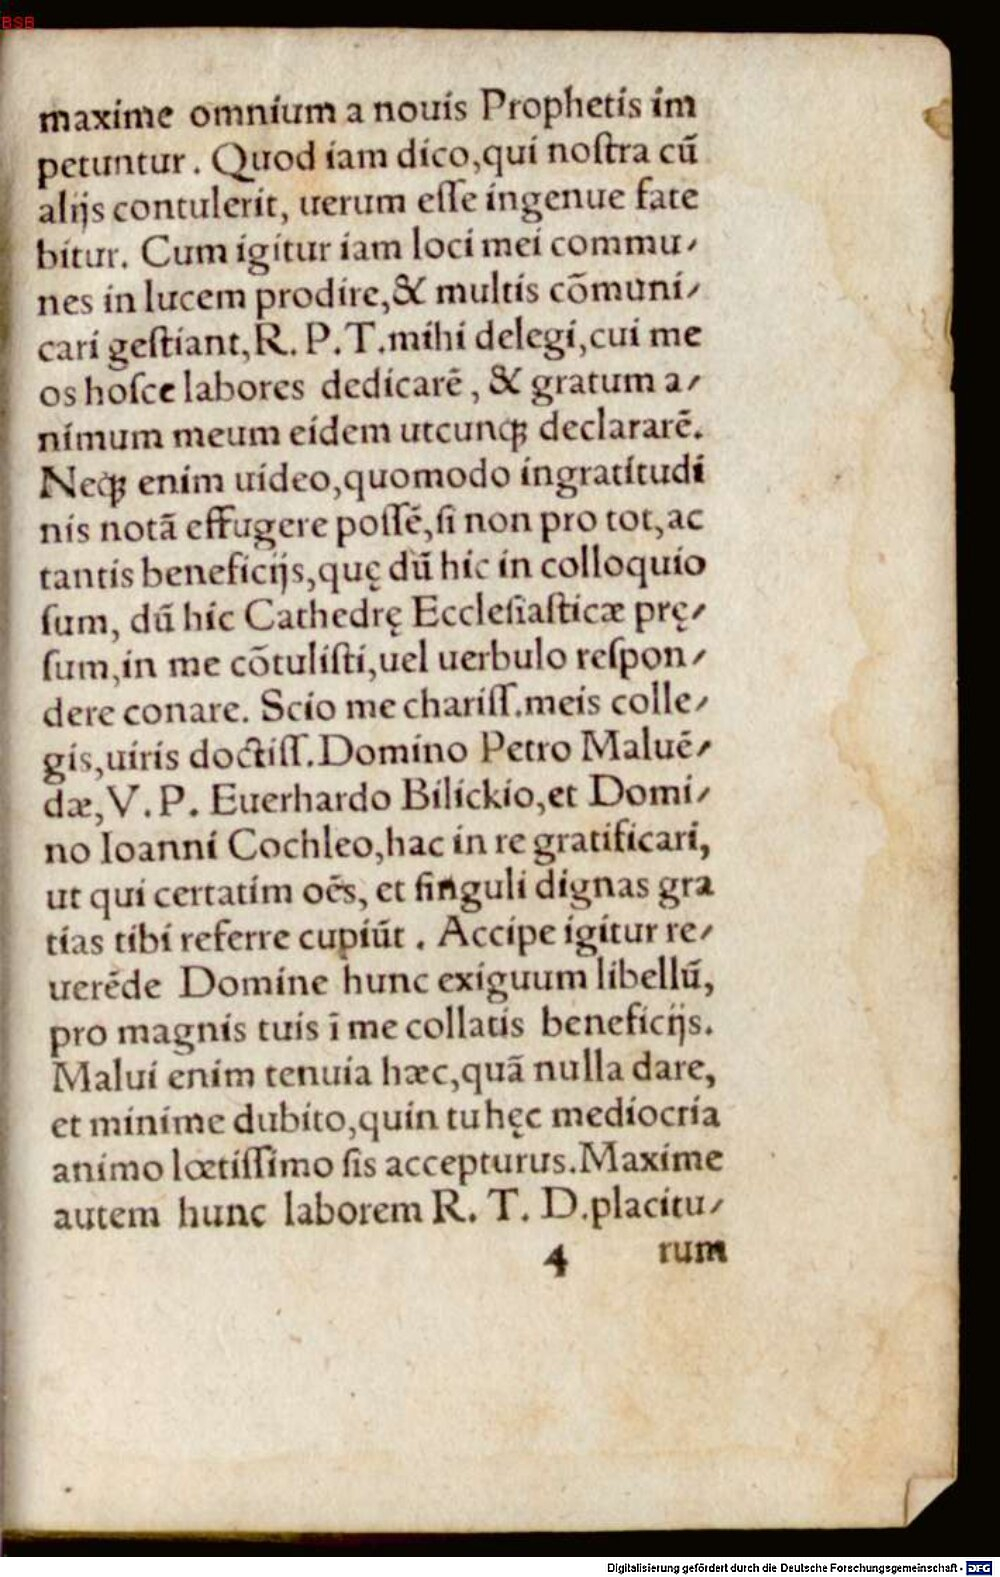 BSB
maxime omnium a nouis Prophetis im
petuntur. Quod iam dico, qui noſtra cũ
alijs contulerit, uerum eſſe ingenue fate
bitur. Cum igitur iam loci mei commu⸗
nes in lucem prodire, & multis cõmuni⸗
cari geſtiant, R. P. T. mihi delegi, cui me
os hoſce labores dedicarẽ, & gratum a⸗
nimum meum eidem utcunqꝫ declararẽ.
Neqꝫ enim uideo, quomodo ingratitudi
nis notã effugere poſſẽ, ſi non pro tot, ac
tantis beneficijs, quę dũ hic in colloquio
ſum, dũ hic Cathedrę Eccleſiaſticæ prę⸗
ſum, in me cõtuliſti, uel uerbulo reſpon⸗
dere conare. Scio me chariſſ. meis colle⸗
gis, uiris doctiſſ. Domino Petro Maluẽ⸗
dæ, V. P. Euerhardo Bilickio, et Domi⸗
no Ioanni Cochleo, hac in re gratificari,
ut qui certatim oẽs, et ſinguli dignas gra
tias tibi referre cupiũt. Accipe igitur re⸗
uerẽde Domine hunc exiguum libellũ,
pro magnis tuis ĩ me collatis beneficijs.
Malui enim tenuia hæc, quã nulla dare,
et minime dubito, quin tu hęc mediocria
animo lœtiſſimo ſis accepturus. Maxime
autem hunc laborem R. T. D. placitu⸗
4 rum
Digitalisierung gefördert durch die Deutsche Forschungsgemeinschaft - DFG